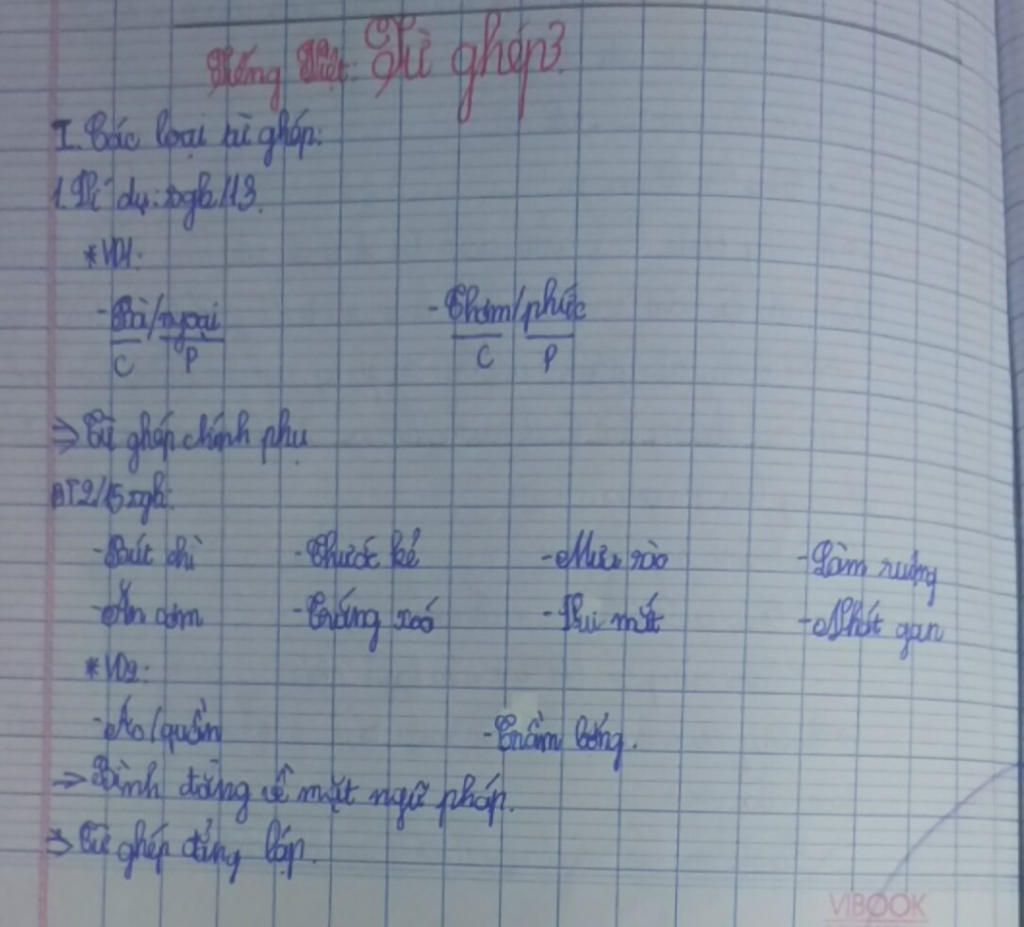 Tiếng Việt: Từ ghép
I. Các loại từ ghép:
1. Ví dụ: sgk/13.
*VD1:
-Bà/ngoại -Thơm/phức
C P C P
⇒ Từ ghép chính phụ
BT2/15 sgk:
-Bút chì -Thước kẻ -Mưa rào -Làm ruộng
-Ăn cơm -Trắng xoá -Vui mắt -Nhát gan
*VD2:
-Áo/quần -Trầm bổng.
⇒ Bình đẳng về mặt ngữ pháp.
⇒ Từ ghép đẳng lập.
VIBOOK